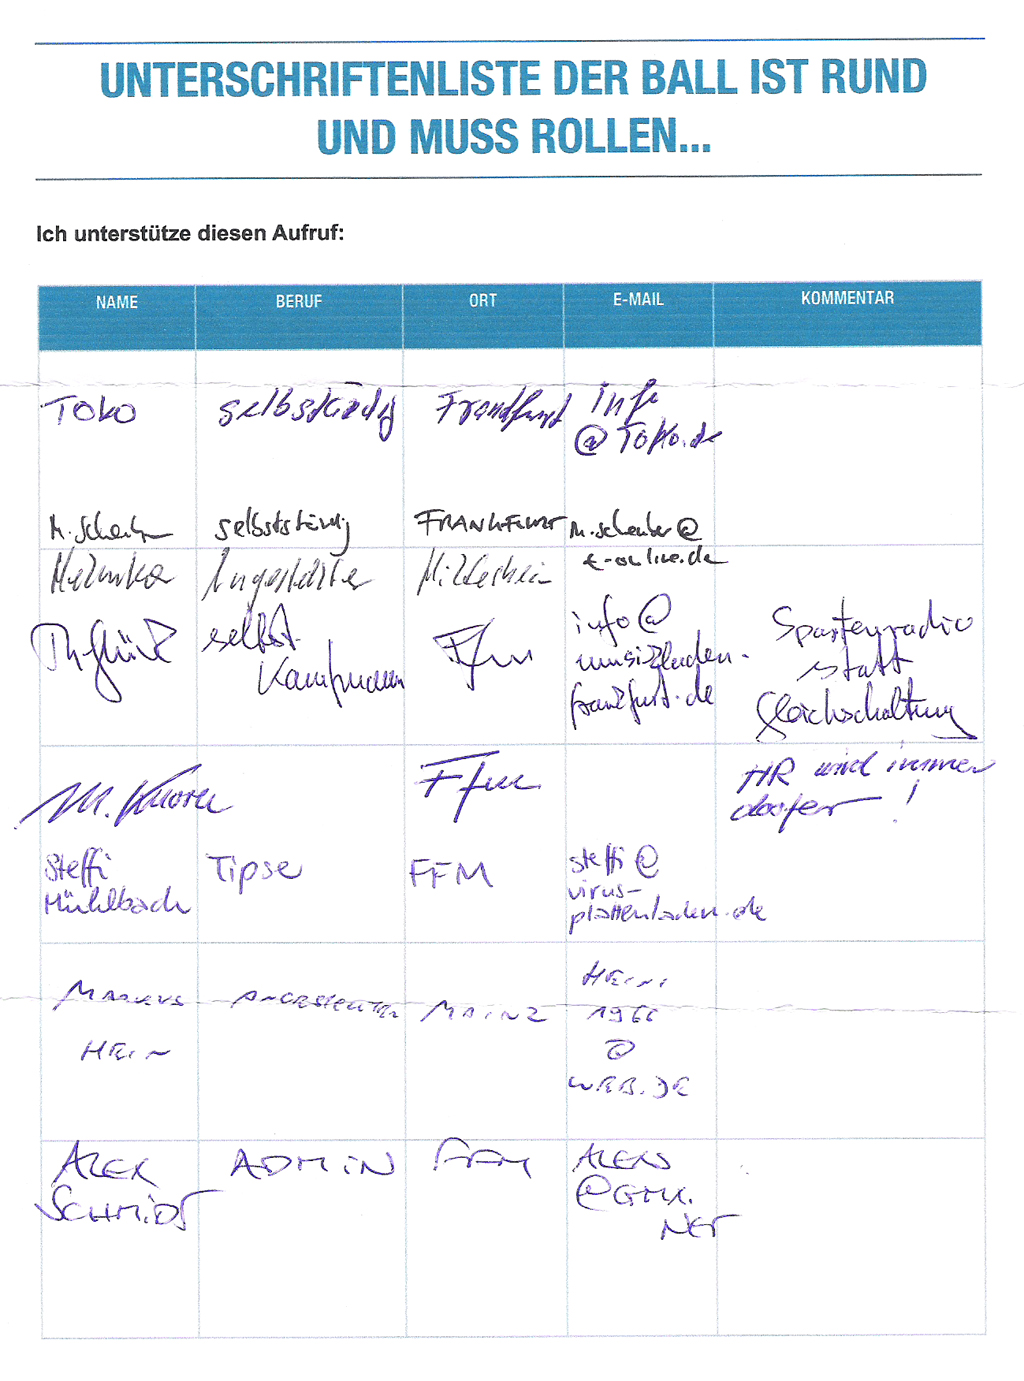 UNTERSCHRIFTENLISTE DER BALL IST RUND
UND MUSS ROLLEN...
Ich unterstütze diesen Aufruf:
NAME BERUF ORT E-MAIL KOMMENTAR
TOKO selbständig Frankfurt info
@ToKo.de
M. Schenker selbstständig FRANKFURT M.schenker@
t-online.de
Angestellte
selbst. Ffm info@ Spartenradio
Kaufmann musikladen- statt
frankfurt.de Gleichschaltung
M. Knorn Ffm HR wird immer
doofer !
Steffi Tipse FFM steffi@
Mühlbach virus-
plattenladen.de
MARKUS ANGESTELLTER MAINZ HEINI
HEIN 1966
@
WEB.DE
ALEX ADMIN FFM ALEXS
SCHMIDT @GMX.
NET